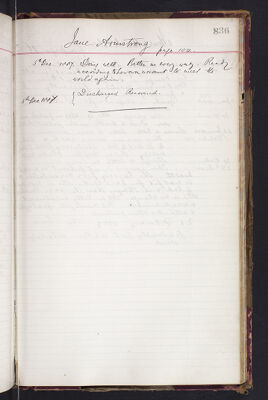 836
Jane Armstrong. page 102.
5th Dec. 1907. Doing well. Better in every way. Ready
according to her own account to meet the
world again.
5th Dec 1907. { Discharged Recovered.